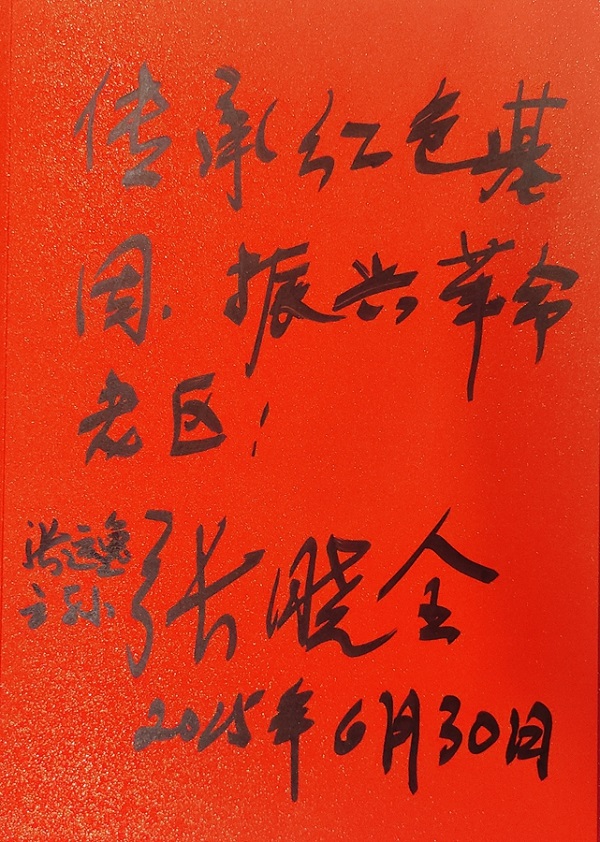 传承红色基
因、振兴革命
老区！
张云逸
之孙 张晓全
2015年6月30日